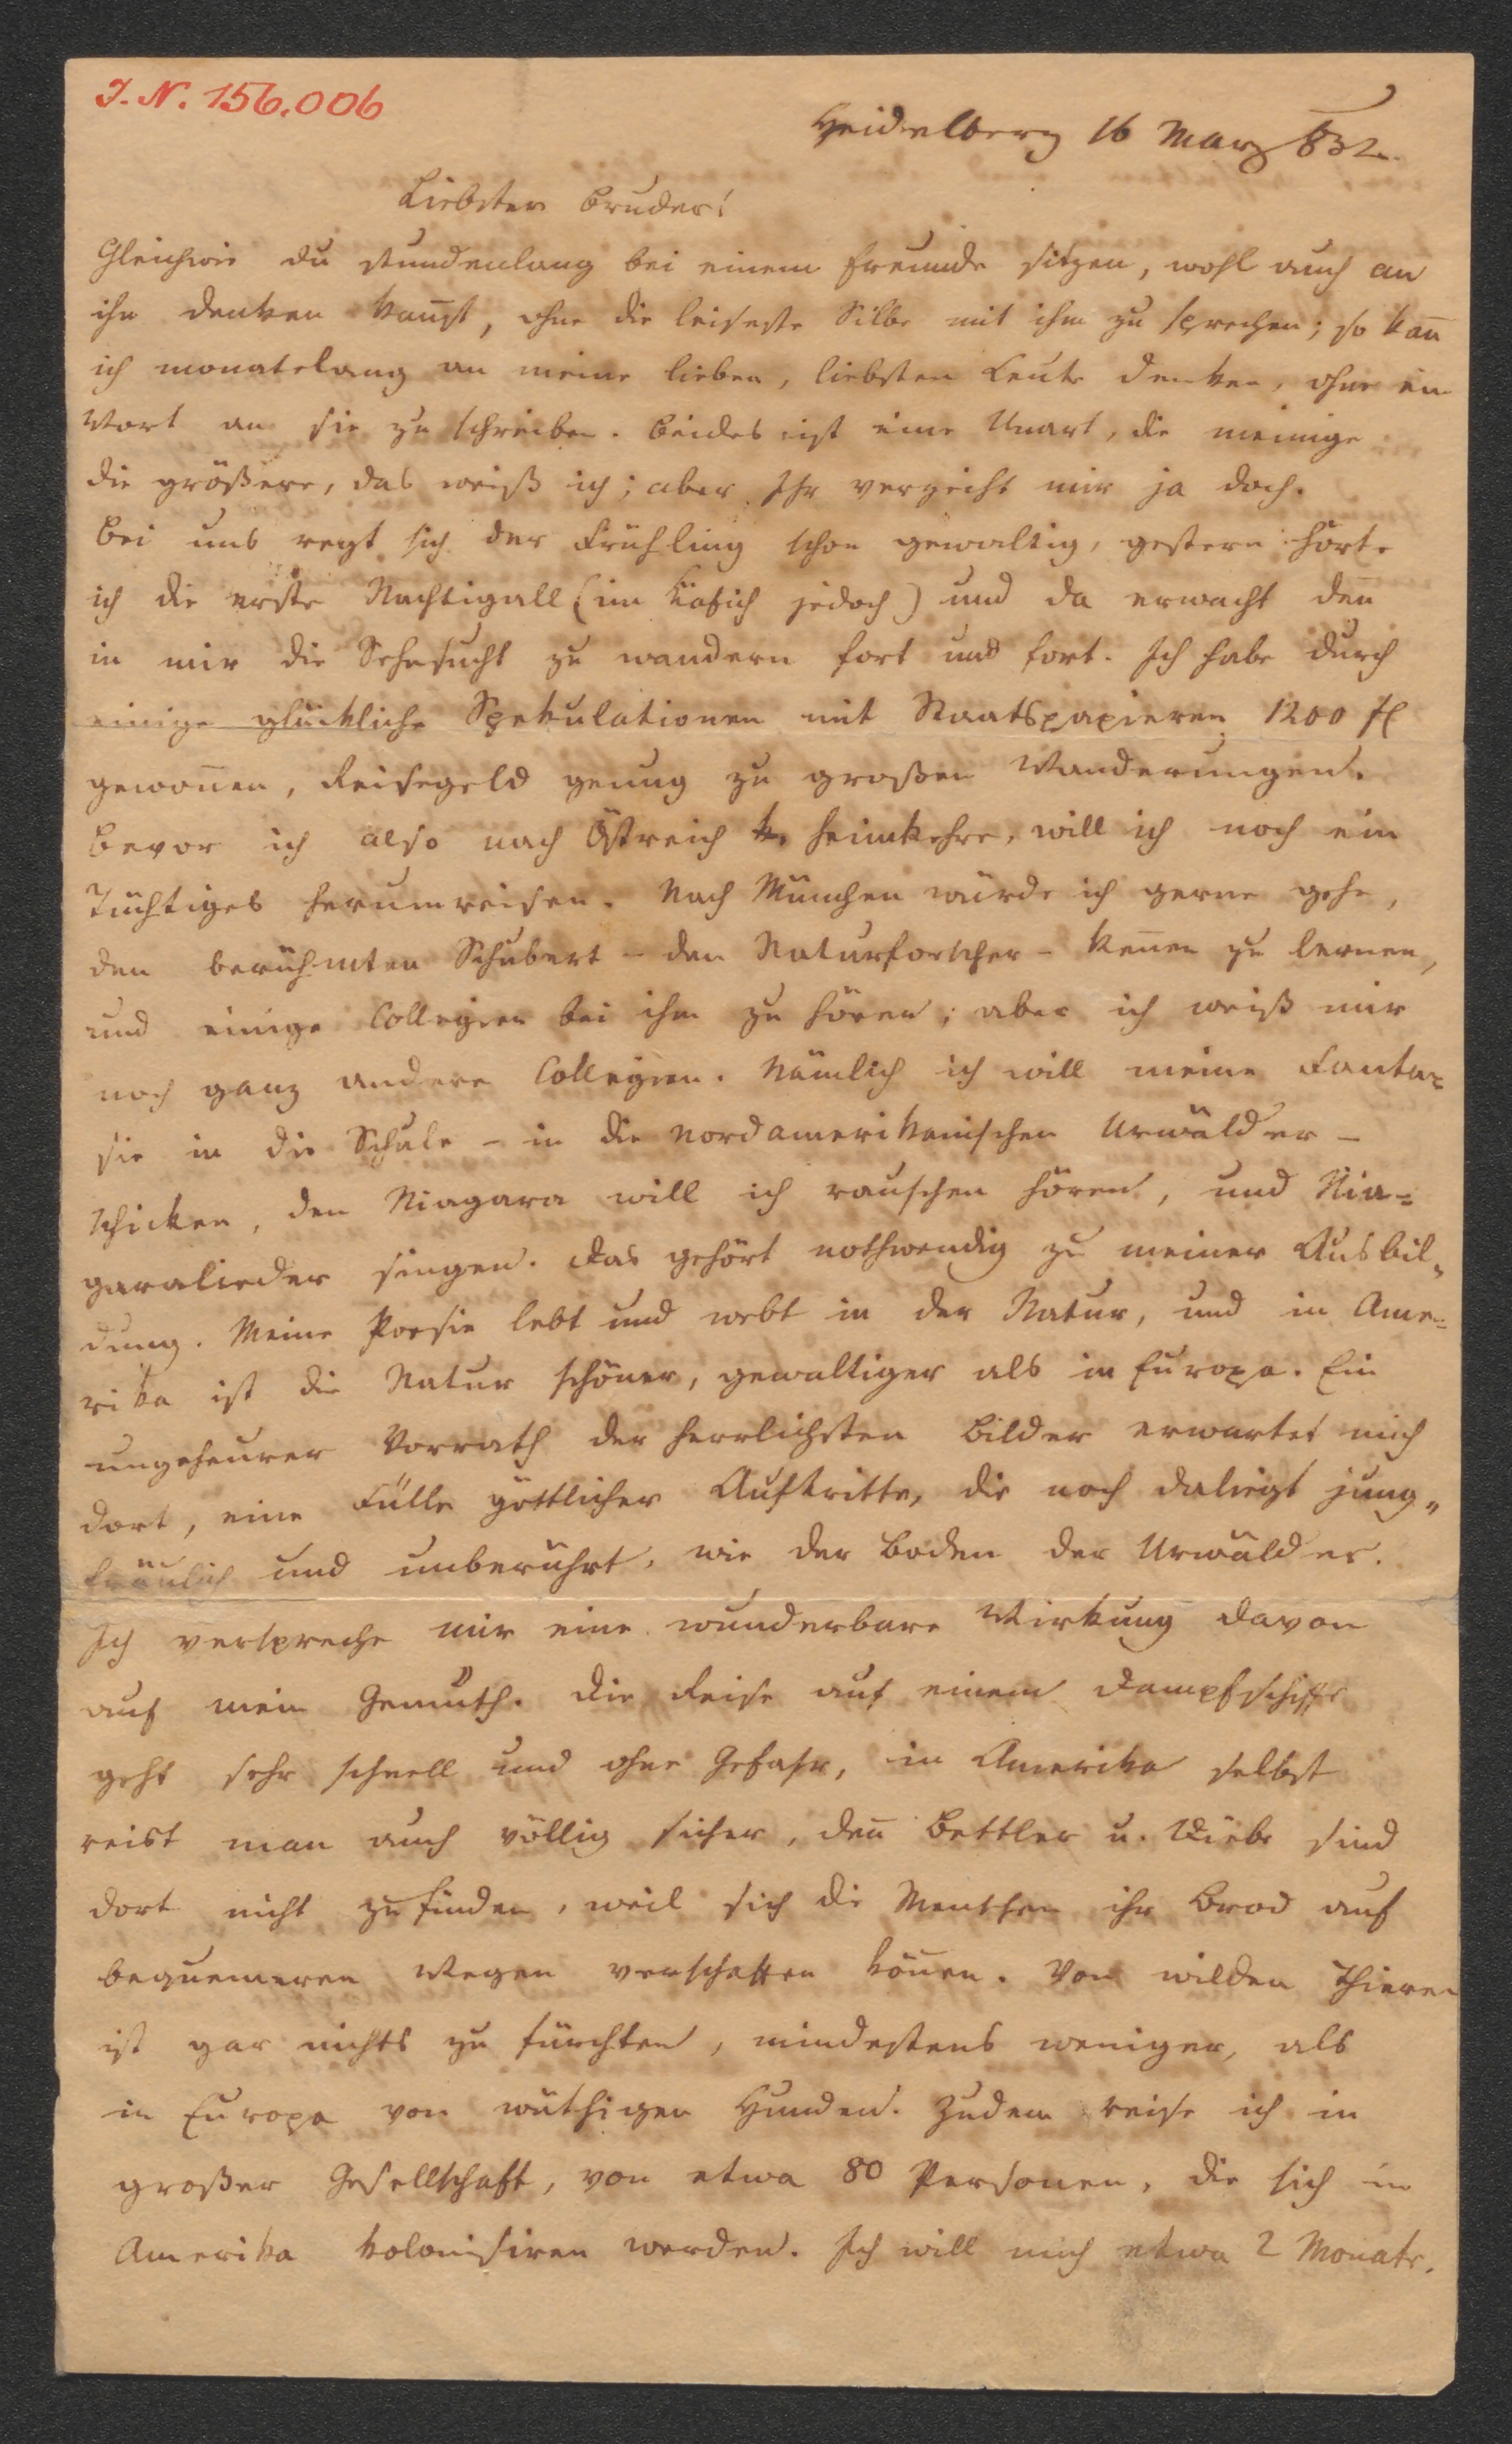 I. N. 156.006
Heidelberg 16 März 832.
Liebster Bruder!
Gleichwie du stundenlang bei einem Freunde sitzen, wohl auch an
ihn denken kañst, ohne die leiseste Silbe mit ihm zu sprechen; so kañ
ich monatelang an meine lieben, liebsten Leute denken, ohne ein
Wort an sie zu schreiben. Beides ist eine Unart, die meinige
die größere, das weiß ich; aber Ihr verzeiht mir ja doch.
Bei uns regt sich der Frühling schon gewaltig, gestern hörte
ich die erste Nachtigall (im Käfich jedoch) und da erwacht deñ
in mir die Sehnsucht zu wandern fort und fort. Ich habe durch
einige glückliche Spekulationen mit Staatspapieren 1200 fl
gewoñen, Reisegeld genug zu großen Wanderungen.
Bevor ich also nach Östreich heimkehre, will ich noch ein
Tüchtiges herumreisen. Nach München würde ich gerne gehe,
den berühmten Schubert – den Naturforscher – keñen zu lernen,
und einige Collegien bei ihm zu hören; aber ich weiß mir
noch ganz andere Collegien. Nämlich ich will meine Fanta=
sie in die Schule – in die nordamerikanischen Urwälder –
schicken, den Niagara will ich rauschen hören, und Nia=
garalieder singen. Das gehört nothwendig zu meiner Ausbil=
dung. Meine Poesie lebt und webt in der Natur, und in Ame=
rika ist die Natur schöner, gewaltiger als in Europa. Ein
ungeheurer Vorrath der herrlichsten Bilder erwartet mich
dort, eine Fülle göttlicher Auftritte, die noch daliegt jung=
fräulich und unberührt, wie der Boden der Urwälder.
Ich verspreche mir eine wunderbare Wirkung davon
auf mein Gemüth. Die Reise auf einem Dampfschiffe
geht sehr schnell und ohne Gefahr, in Amerika selbst
reist man auch völlig sicher, deñ Bettler u. Diebe sind
dort nicht zu finden, weil sich die Menschen ihr Brod auf
bequemeren Wegen verschaffen köñen. Von wilden Thieren
ist gar nichts zu fürchten, mindestens weniger, als
in Europa von wüthigen Hunden. Zudem reise ich in
großer Gesellschaft, von etwa 80 Personen, die sich in
Amerika kolonisiren werden. Ich will mich etwa 2 Monate.